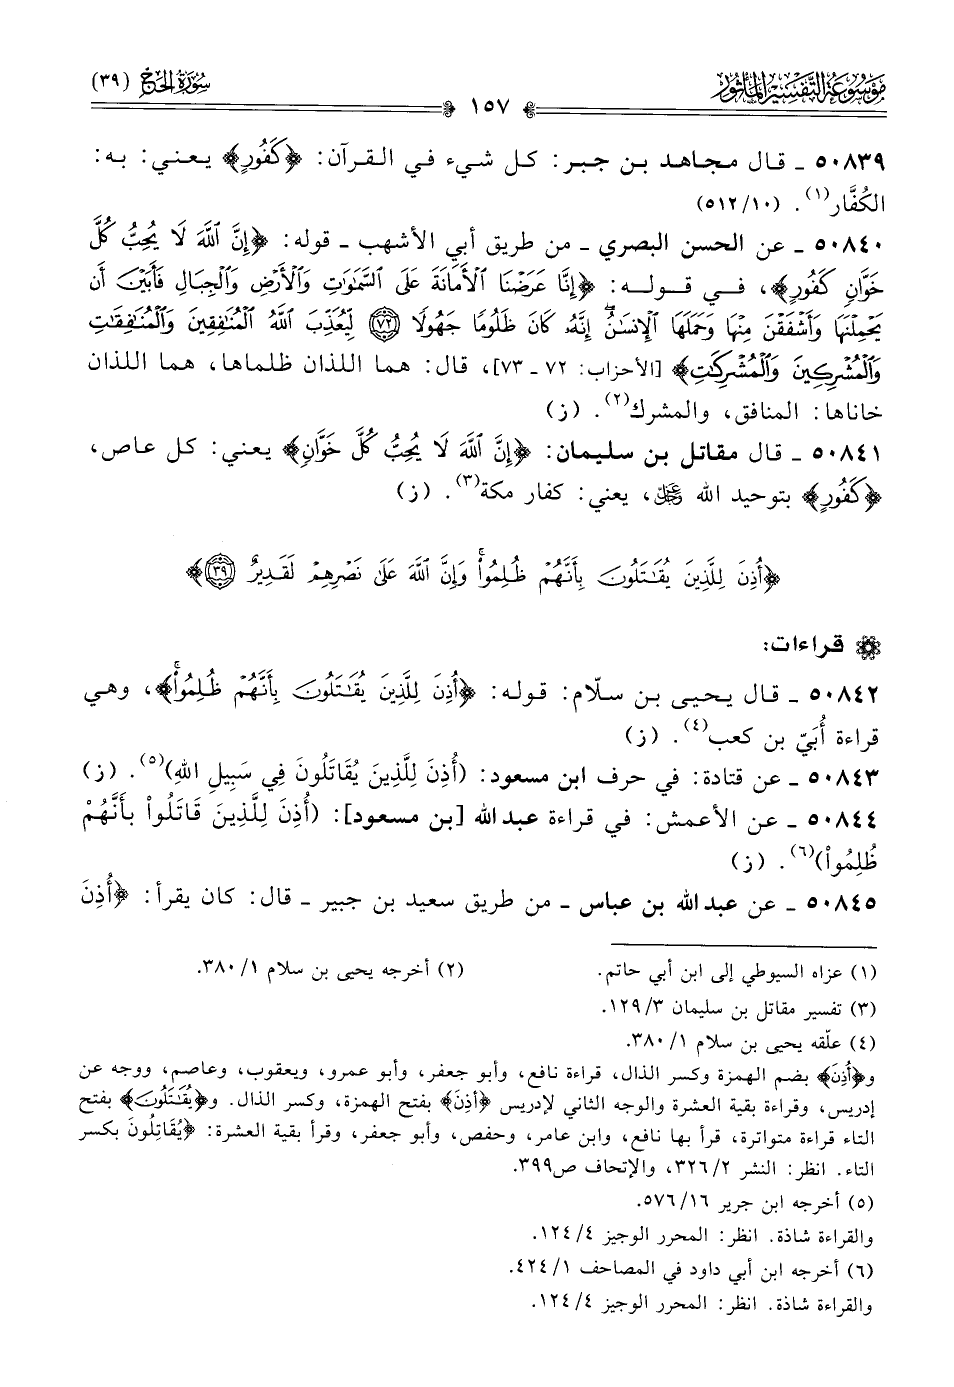 مَوْسُوعَةُ التَّفْسِيرِ المَأْثُور
سُورَةُ الحَجِّ (٣٩)
١٥٧
٥٠٨٣٩ ـ قال مجاهد بن جبر: كل شيء في القرآن: ﴿كَفُورٍ﴾ يعني: به:
الكُفَّار(١). (١٠/٥١٢)
٥٠٨٤٠ ـ عن الحسن البصري ـ من طريق أبي الأشهب ـ قوله: ﴿إِنَّ اللَّهَ لَا يُحِبُّ كُلَّ
خَوَّانٍ كَفُورٍ﴾، في قوله: ﴿إِنَّا عَرَضْنَا الْأَمَانَةَ عَلَى السَّمَوَاتِ وَالْأَرْضِ وَالْجِبَالِ فَأَبَيْنَ أَن
يَحْمِلْنَهَا وَأَشْفَقْنَ مِنْهَا وَحَمَلَهَا الْإِنسَانُ إِنَّهُ كَانَ ظَلُومًا جَهُولًا ﴿٧٢﴾ لِّيُعَذِّبَ اللَّهُ الْمُنَافِقِينَ وَالْمُنَافِقَاتِ
وَالْمُشْرِكِينَ وَالْمُشْرِكَاتِ﴾ [الأحزاب: ٧٢ ـ ٧٣]، قال: هما اللذان ظلماها، هما اللذان
خاناها: المنافق، والمشرك(٢). (ز)
٥٠٨٤١ ـ قال مقاتل بن سليمان: ﴿إِنَّ اللَّهَ لَا يُحِبُّ كُلَّ خَوَّانٍ﴾ يعني: كل عاص،
﴿كَفُورٍ﴾ بتوحيد الله عز وجل، يعني: كفار مكة(٣). (ز)
﴿أُذِنَ لِلَّذِينَ يُقَاتَلُونَ بِأَنَّهُمْ ظُلِمُوا وَإِنَّ اللَّهَ عَلَى نَصْرِهِمْ لَقَدِيرٌ ﴿٣٩﴾﴾
قراءات:
٥٠٨٤٢ ـ قال يحيى بن سلّام: قوله: ﴿أُذِنَ لِلَّذِينَ يُقَاتَلُونَ بِأَنَّهُمْ ظُلِمُوا﴾، وهي
قراءة أُبَيّ بن كعب(٤). (ز)
٥٠٨٤٣ ـ عن قتادة: في حرف ابن مسعود: (أُذِنَ لِلَّذِينَ يُقَاتَلُونَ فِي سَبِيلِ اللهِ)(٥). (ز)
٥٠٨٤٤ ـ عن الأعمش: في قراءة عبد الله [بن مسعود]: (أُذِنَ لِلَّذِينَ قَاتَلُواْ بِأَنَّهُمْ
ظُلِمُواْ)(٦). (ز)
٥٠٨٤٥ ـ عن عبد الله بن عباس ـ من طريق سعيد بن جبير ـ قال: كان يقرأ: ﴿أُذِنَ
(١) عزاه السيوطي إلى ابن أبي حاتم. (٢) أخرجه يحيى بن سلام ١/ ٣٨٠.
(٣) تفسير مقاتل بن سليمان ٣/ ١٢٩.
(٤) علّقه يحيى بن سلام ١/ ٣٨٠.
و﴿أُذِنَ﴾ بضم الهمزة وكسر الذال، قراءة نافع، وأبو جعفر، وأبو عمرو، ويعقوب، وعاصم، ووجه عن
إدريس، وقراءة بقية العشرة والوجه الثاني لإدريس ﴿أَذِنَ﴾ بفتح الهمزة، وكسر الذال. و﴿يُقَاتَلُونَ﴾ بفتح
التاء قراءة متواترة، قرأ بها نافع، وابن عامر، وحفص، وأبو جعفر، وقرأ بقية العشرة: ﴿يُقَاتِلُونَ بكسر
التاء. انظر: النشر ٢/ ٣٢٦، والإتحاف ص٣٩٩.
(٥) أخرجه ابن جرير ١٦/ ٥٧٦.
والقراءة شاذة. انظر: المحرر الوجيز ٤/ ١٢٤.
(٦) أخرجه ابن أبي داود في المصاحف ١/ ٤٢٤.
والقراءة شاذة. انظر: المحرر الوجيز ٤/ ١٢٤.